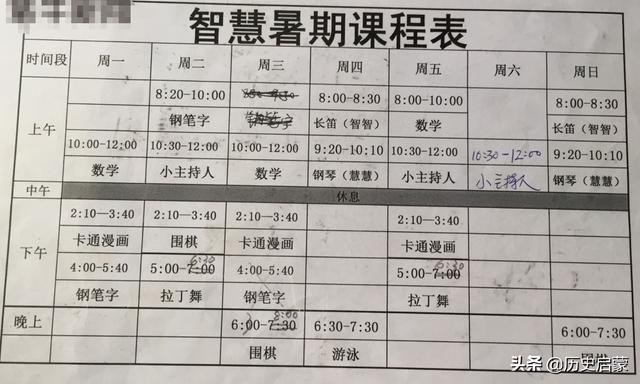 智慧暑期课程表
时间段 周一 周二 周三 周四 周五 周六 周日
8:20-10:00 8:00-8:30 8:00-10:00 8:00-8:30
上午 钢笔字 钢笔字 长笛（智智） 数学 长笛（智智）
10:00-12:00 10:30-12:00 10:00-12:00 9:20-10:10 10:30-12:00 10:30-12:00 9:20-10:10
数学 小主持人 数学 钢琴（慧慧） 小主持人 小主持人 钢琴（慧慧）
中午 休息
2:10—3:40 2:10—3:40 2:10—3:40 2:10—3:40
下午 卡通漫画 围棋 卡通漫画 卡通漫画
4:00-5:40 5:00-7:00 6:30 4:00-5:40 5:00-7:00 6:30
钢笔字 拉丁舞 钢笔字 拉丁舞
晚上 6:00-7:30 8:00 6:30-7:30 6:00-7:30
围棋 游泳 围棋
头条 @历史启蒙